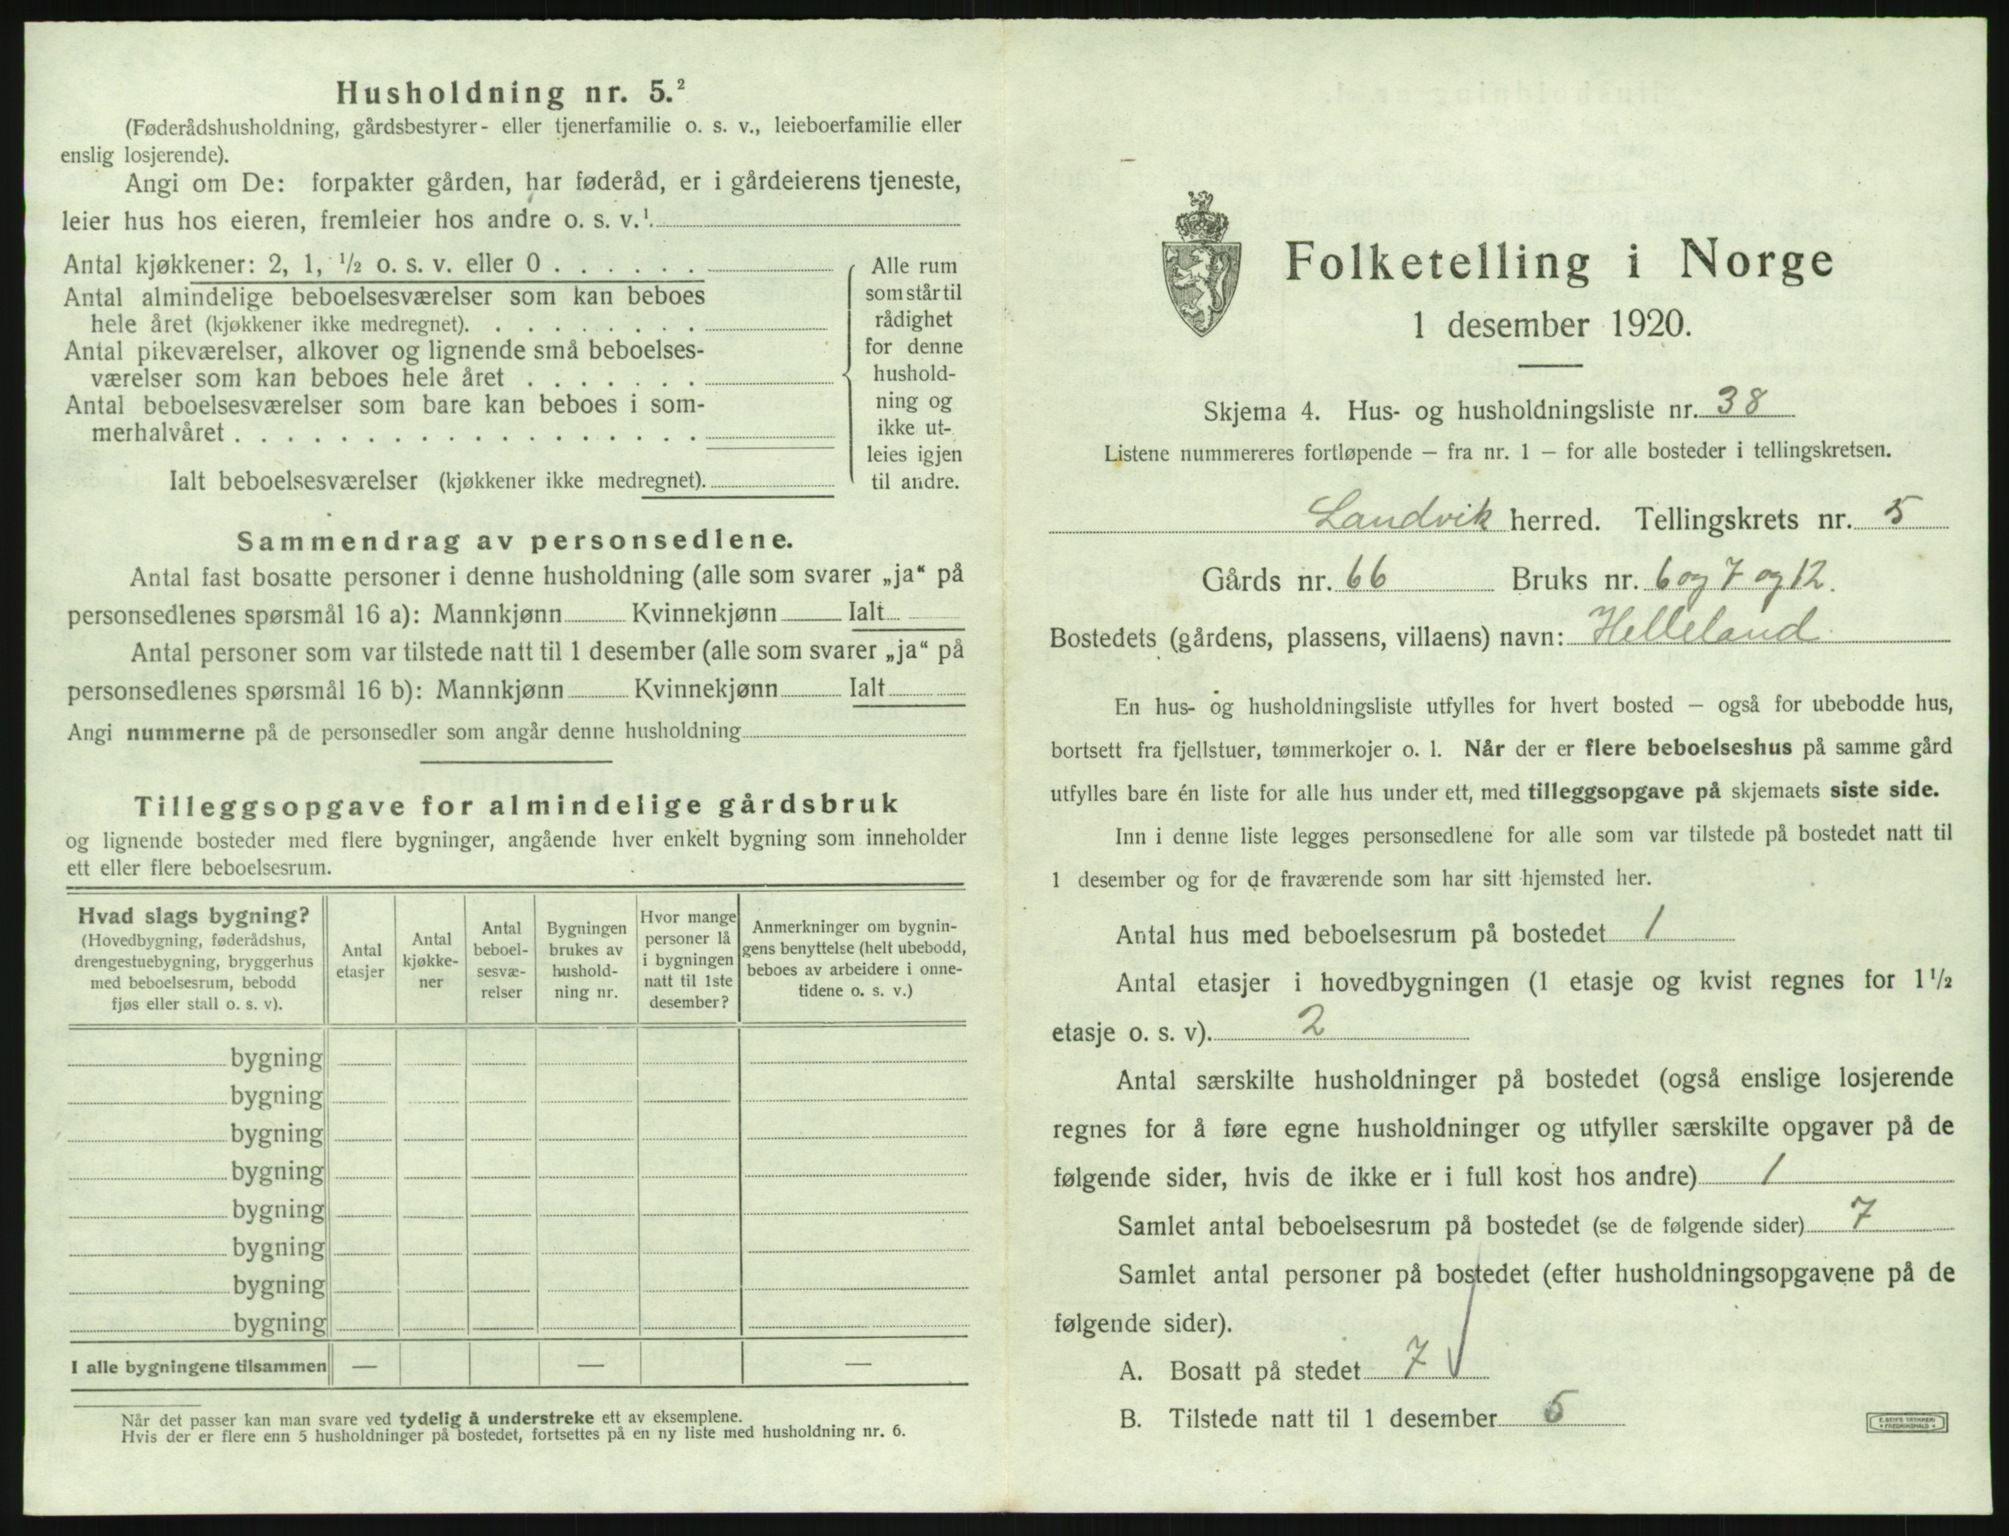 Husholdning nr. 5.²
(Føderådshusholdning, gårdsbestyrer- eller tjenerfamilie o. s. v., leieboerfamilie eller
enslig losjerende).
Angi om De: forpakter gården, har føderåd, er i gårdeierens tjeneste,
leier hus hos eieren, fremleier hos andre o. s. v.¹
Antal kjøkkener: 2, 1, ½ o. s. v. eller 0 . . . . . .
Antal almindelige beboelsesværelser som kan beboes
hele året (kjøkkener ikke medregnet). . . . . . . . .
Antal pikeværelser, alkover og lignende små beboelses-
værelser som kan beboes hele året . . . . . . .
Antal beboelsesværelser som bare kan beboes i som-
merhalvåret . . . . . . . . . . . . . . . . . .
Ialt beboelsesværelser (kjøkkener ikke medregnet).
Alle rum
som står til
rådighet
for denne
hushold-
ning og
ikke ut-
leies igjen
til andre.
Sammendrag av personsedlene.
Antal fast bosatte personer i denne husholdning (alle som svarer „ja“ på
personsedlenes spørsmål 16 a): Mannkjønn Kvinnekjønn Ialt
Antal personer som var tilstede natt til 1 desember (alle som svarer „ja“ på
personsedlenes spørsmål 16 b): Mannkjønn Kvinnekjønn Ialt
Angi nummerne på de personsedler som angår denne husholdning
Tilleggsopgave for almindelige gårdsbruk
og lignende bosteder med flere bygninger, angående hver enkelt bygning som inneholder
ett eller flere beboelsesrum.
Hvad slags bygning?
(Hovedbygning, føderådshus,
drengestuebygning, bryggerhus
med beboelsesrum, bebodd
fjøs eller stall o. s. v).
Antal
etasjer
Antal
kjøkke-
ner
Antal
beboel-
sesvæ-
relser
Bygningen
brukes av
hushold-
ning nr.
Hvor mange
personer lå
i bygningen
natt til 1ste
desember?
Anmerkninger om bygnin-
gens benyttelse (helt ubebodd,
beboes av arbeidere i onne-
tidene o. s. v.)
bygning
bygning
bygning
bygning
bygning
bygning
bygning
bygning
I alle bygningene tilsammen — — —
Når det passer kan man svare ved tydelig å understreke ett av eksemplene.
Hvis der er flere enn 5 husholdninger på bostedet, fortsettes på en ny liste med husholdning nr. 6.
Folketelling i Norge
1 desember 1920.
Skjema 4. Hus- og husholdningsliste nr. 38
Listene nummereres fortløpende — fra nr. 1 — for alle bosteder i tellingskretsen.
Landvik herred. Tellingskrets nr. 5
Gårds nr. 66 Bruks nr. 6 og 7 og 12.
Bostedets (gårdens, plassens, villaens) navn: Helleland
En hus- og husholdningsliste utfylles for hvert bosted — også for ubebodde hus,
bortsett fra fjellstuer, tømmerkojer o. l. Når der er flere beboelseshus på samme gård
utfylles bare én liste for alle hus under ett, med tilleggsopgave på skjemaets siste side.
Inn i denne liste legges personsedlene for alle som var tilstede på bostedet natt til
1 desember og for de fraværende som har sitt hjemsted her.
Antal hus med beboelsesrum på bostedet 1
Antal etasjer i hovedbygningen (1 etasje og kvist regnes for 1½
etasje o. s. v). 2
Antal særskilte husholdninger på bostedet (også enslige losjerende
regnes for å føre egne husholdninger og utfyller særskilte opgaver på de
følgende sider, hvis de ikke er i full kost hos andre) 1
Samlet antal beboelsesrum på bostedet (se de følgende sider) 7
Samlet antal personer på bostedet (efter husholdningsopgavene på de
følgende sider).
A. Bosatt på stedet 7
B. Tilstede natt til 1 desember 6